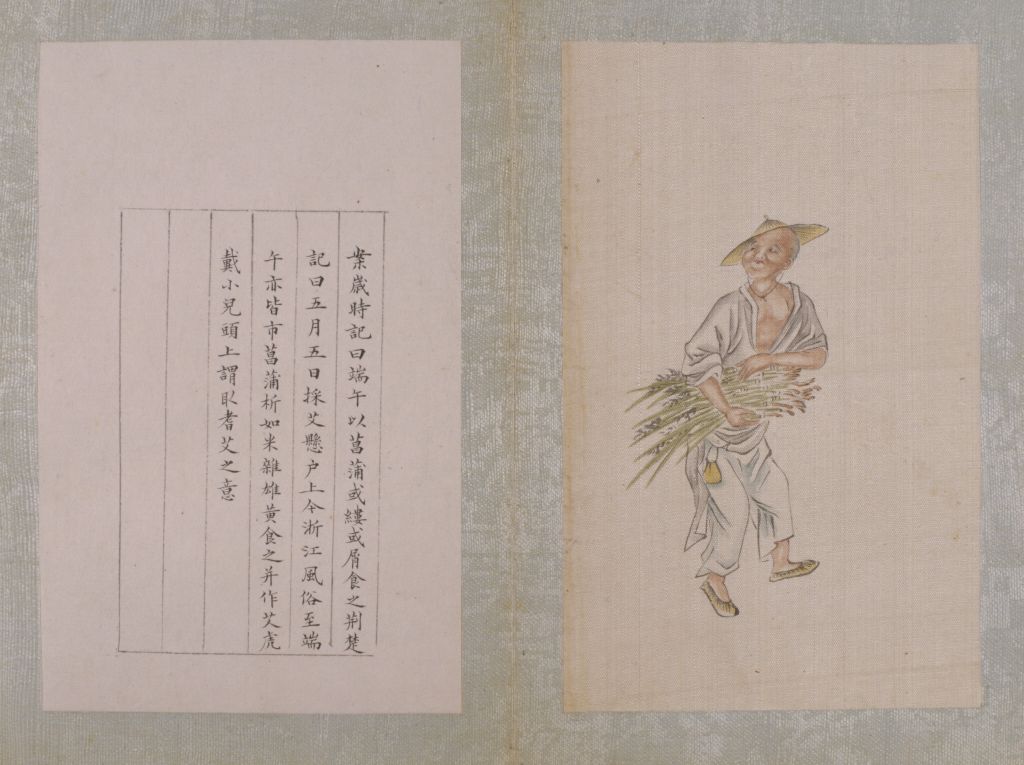 業歲時記曰端午以菖蒲或縷或屑食之荆楚
記曰五月五日採艾懸户上今浙江風俗至端
午亦皆市菖蒲析如米雜雄黄食之并作艾虎
戴小兒頭上謂取耆艾之意